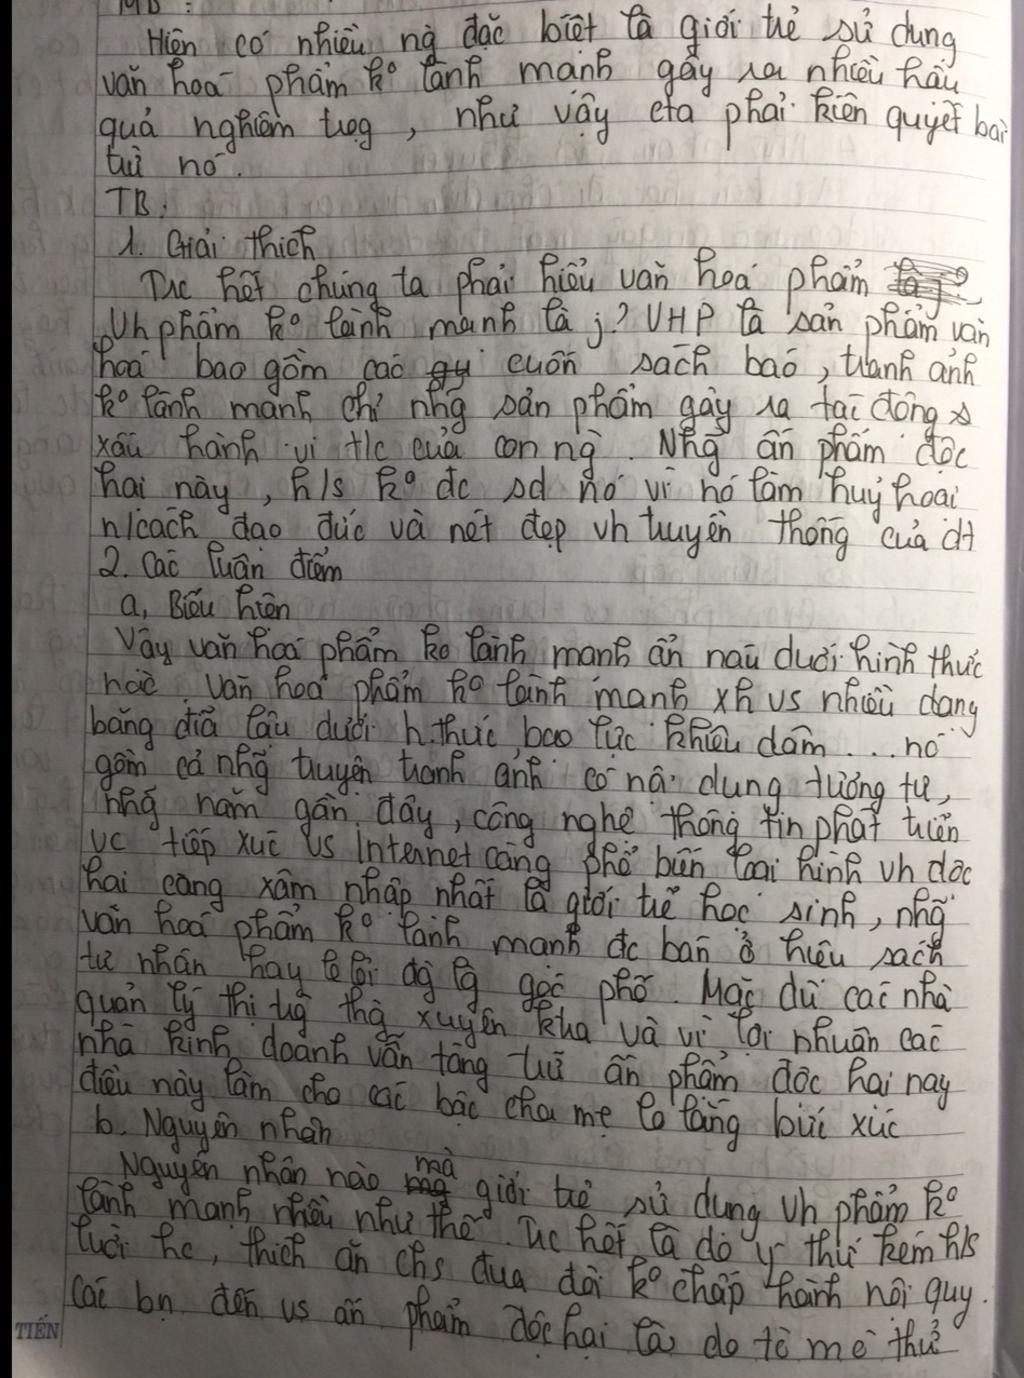 MB:
Hiện có nhiều ng đặc biệt là giới trẻ sử dụng
văn hoá phẩm ko lành mạnh gây ra nhiều hậu
quả nghiêm trọg, như vậy cta phải kiên quyết bài
trừ nó.
TB:
1. Giải thích
Trc hết chúng ta phải hiểu văn hoá phẩm
Vh phẩm ko lành mạnh là j? VHP là sản phẩm văn
hoá bao gồm các cuốn sách báo, tranh ảnh
ko lành mạnh chỉ nhg sản phẩm gây ra tác động
xấu hành vi t/c của con ng. Nhg ấn phẩm độc
hại này, h/s ko đc sd nó vì nó làm huỷ hoại
n/cách đạo đức và nét đẹp vh truyền thống của dt
2. Các luận điểm
a, Biểu hiện
Vậy văn hoá phẩm ko lành mạnh ẩn náu dưới hình thức
nào. Văn hoá phẩm ko lành mạnh xh vs nhiều dạng
băng đĩa lậu dưới h.thức bạo lực khiêu dâm ... nó
gồm cả nhg truyện tranh ảnh có nộ dung tương tự,
nhg năm gần đây, công nghệ thông tin phát triển
vc tiếp xúc vs internet càng phổ biến loại hình vh độc
hại càng xâm nhập nhất là giới trẻ học sinh, nhg
văn hoá phẩm ko lành mạnh đc bán ở hiệu sách
tư nhân hay lề lối đg lg góc phố. Mặc dù các nhà
quản lý thị trg thg xuyên kha và vì lợi nhuận các
nhà kinh doanh vẫn tàng trữ ấn phẩm độc hại này
điều này làm cho các bậc cha mẹ lo lắng bức xúc
b. Nguyên nhân
Nguyên nhân nào mà giới trẻ sử dụng vh phẩm ko
lành mạnh nhiều như thế. Trc hết là do ý thứ kém h/s
lười hc, thích ăn chs đua đòi ko chấp hành nội quy.
Các bn đến vs ấn phẩm độc hại là do tò mò thử
TIẾN